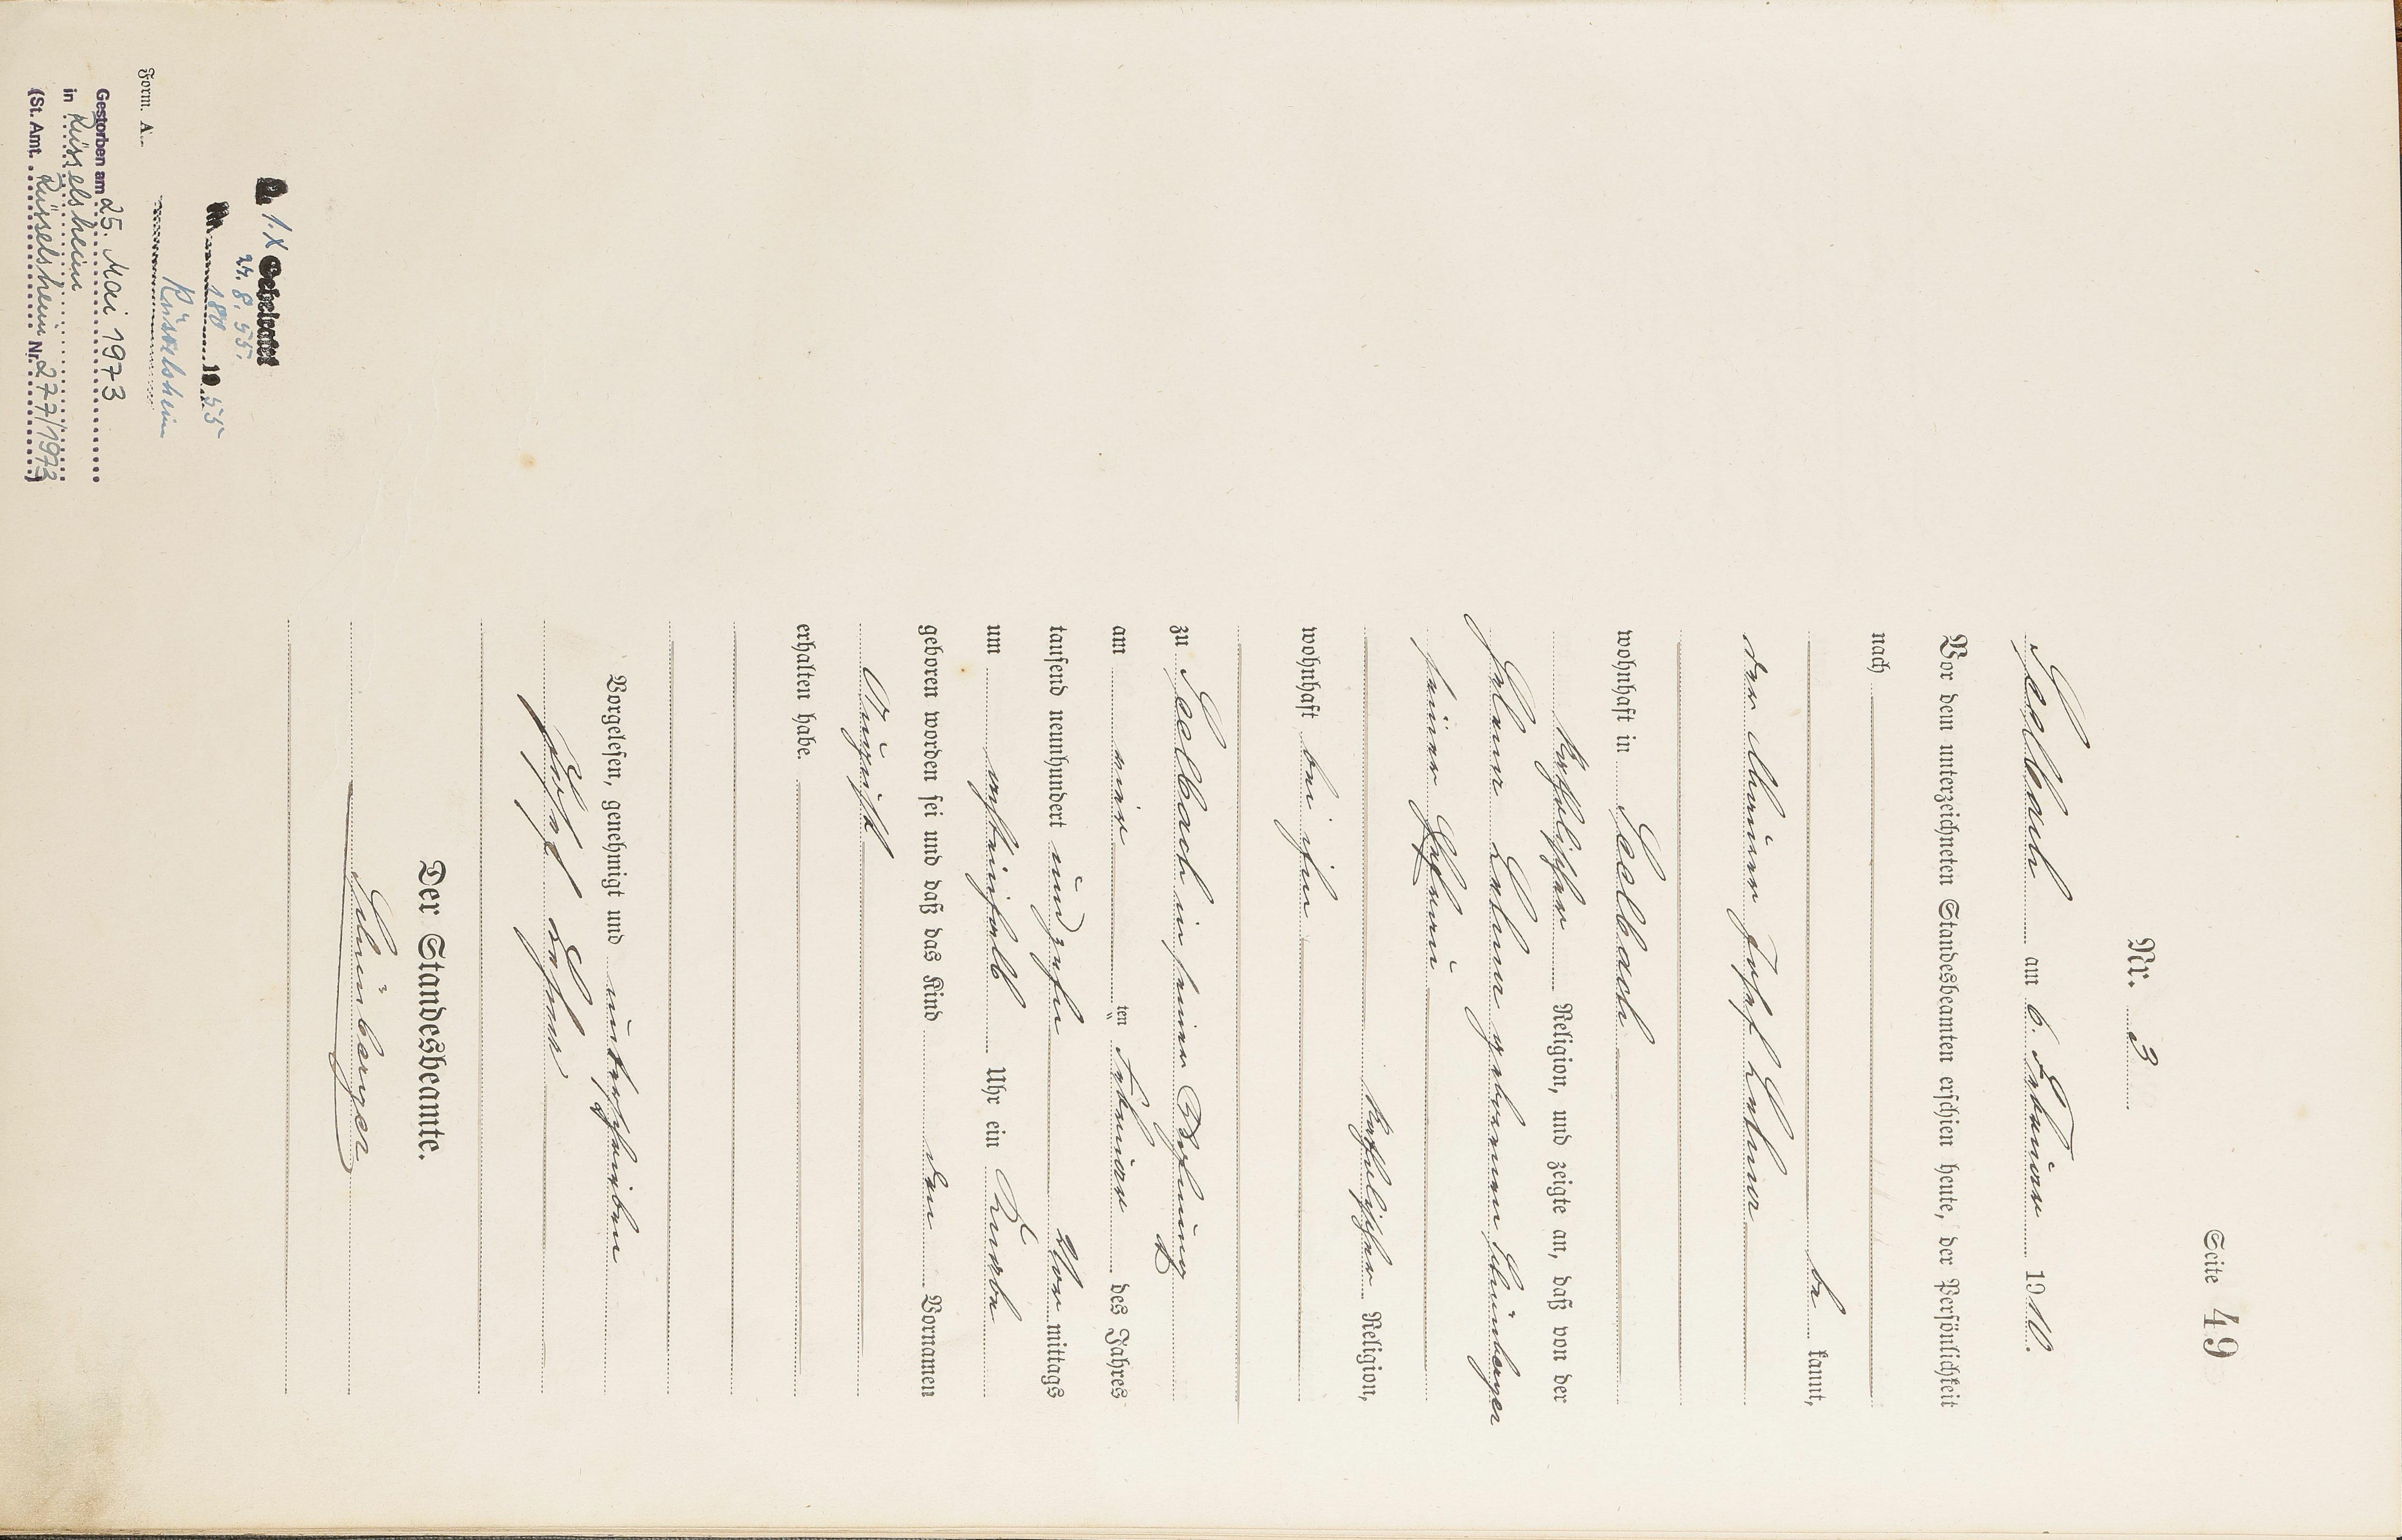 Seite 49
Nr. 3
Seelbach am 6. Februar 1910.
Vor dem unterzeichneten Standesbeamten erschien heute, der Persönlichkeit
nach
be kannt,
der Maurer Josef
wohnhaft in Seelbach
katholischer Religion, und zeigte an, daß von der
geborenen Schönberger
seiner Ehefrau
katholischer Religion,
wohnhaft bei ihm
zu Seelbach in seiner Wohnung
am vier ten Februar des Jahres
tausend neunhundert und zehn Vor mittags
um Uhr ein Knabe
geboren worden sei und daß das Kind den Vornamen
August
erhalten habe.
Vorgelesen, genehmigt und unterschrieben
Josef
Der Standesbeamte.
Schönberger
1. X Geheiratet
24. 8. 55.
Nr. 180 19 55
Rüsselsheim
Form. A.
Gestorben am 25. Mai 1973
in Rüsselsheim
(St. Amt. Rüsselsheim Nr. 277/1973)